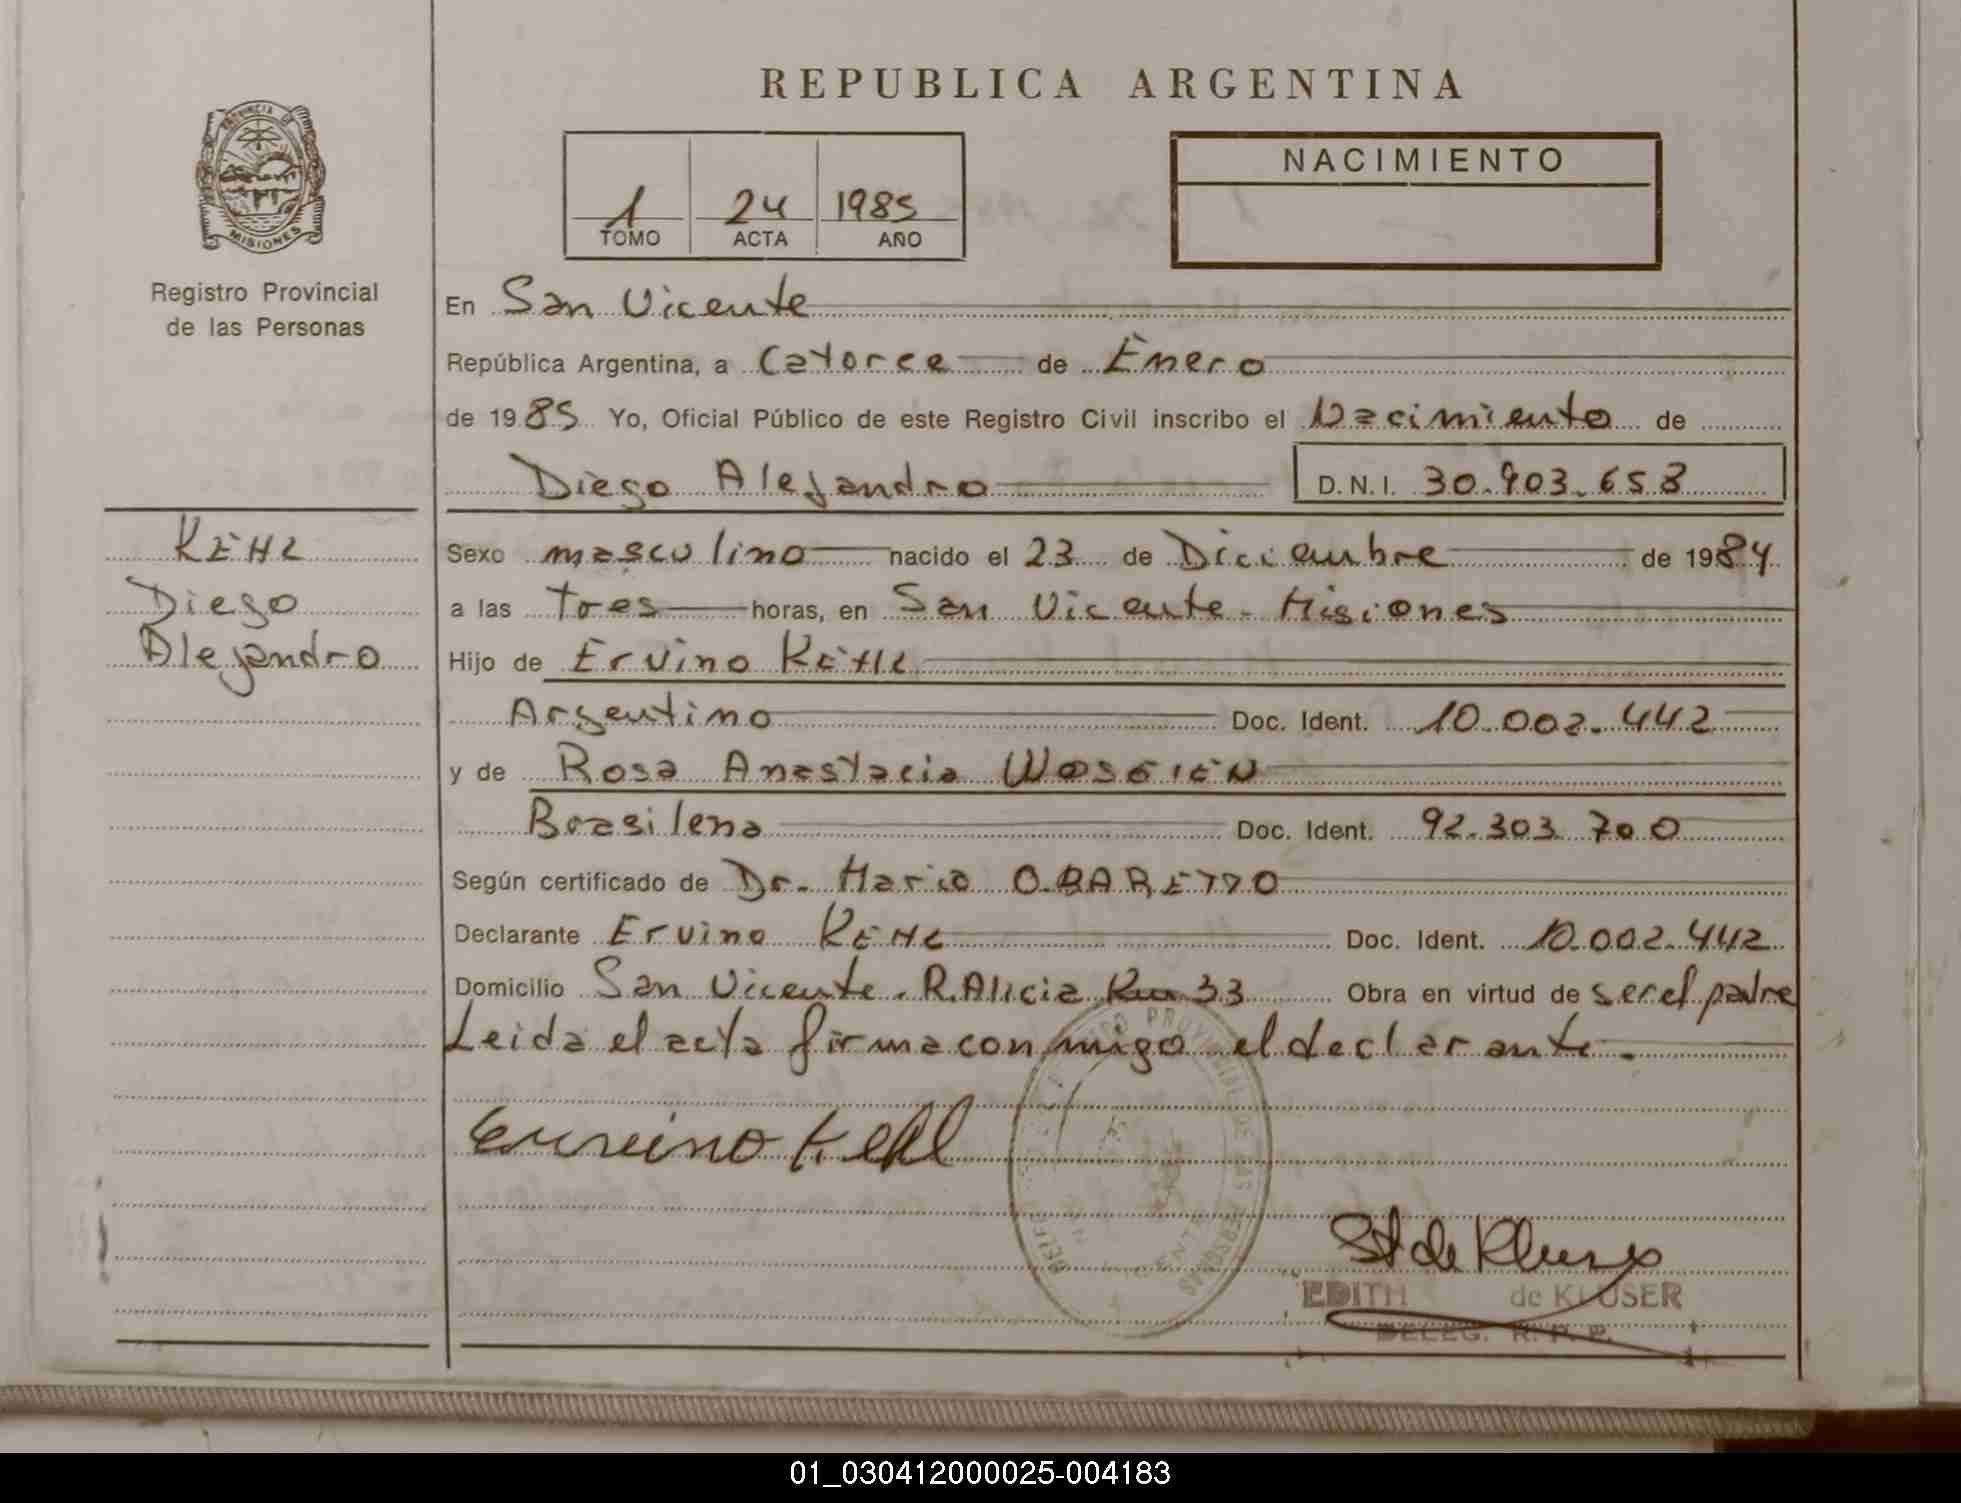 REPUBLICA ARGENTINA
PROVINCIA DE
MISIONES
Registro Provincial
de las Personas
1 24 1985
TOMO ACTA AÑO
NACIMIENTO
En San Vicente
República Argentina, a Catorce de Enero
de 1985 Yo, Oficial Público de este Registro Civil inscribo el Nacimiento de
Diego Alejandro D.N.I. 30.903.658
KEHL
Diego
Alejandro
Sexo masculino nacido el 23 de Diciembre de 1984
a las tres horas, en San Vicente - Misiones
Hijo de Ervino KEHL
Argentino Doc. Ident. 10.002.442
y de Rosa Anastacia
Brasilena Doc. Ident. 92.303.700
Según certificado de Dr. Mario O. BARETTO
Declarante Ervino KEHL Doc. Ident. 10.002.442
Domicilio San Vicente. R. Alicia Km 33 Obra en virtud de ser el padre
Leida el acta firma conmigo el declarante.
Erveino Kehl
EDITH de KLUSER
DELEG. R. P. P.
01_030412000025-004183